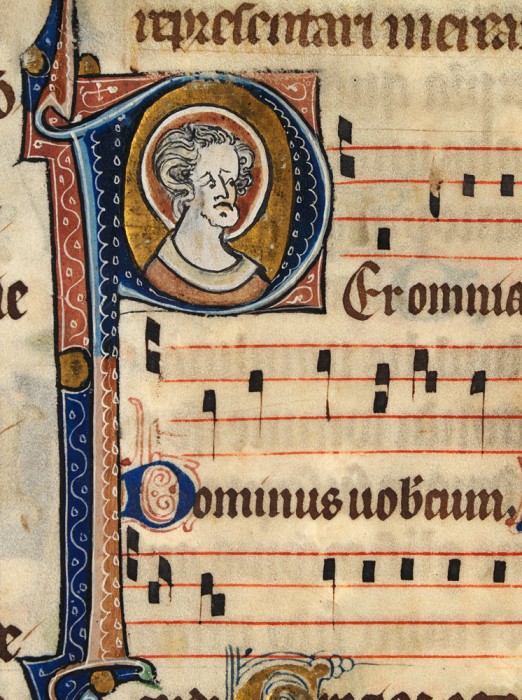 representari merea
Per omnia
Dominus vobscum.